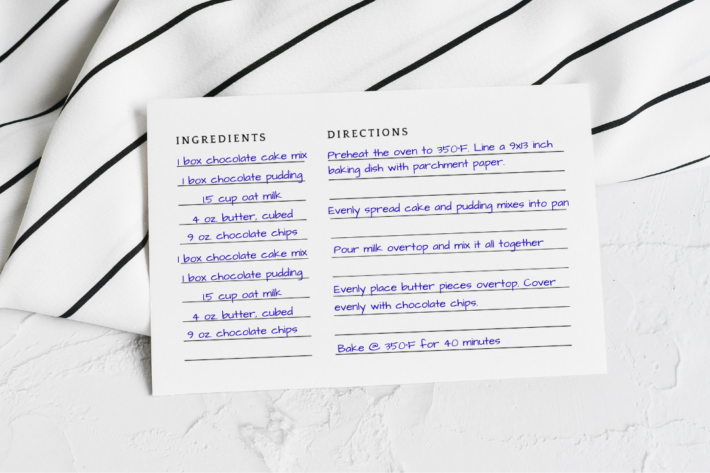 INGREDIENTS
1 box chocolate cake mix
1 box chocolate pudding
15 cup oat milk
4 oz butter, cubed
9 oz chocolate chips
1 box chocolate cake mix
1 box chocolate pudding
15 cup oat milk
4 oz butter, cubed
9 oz chocolate chips
DIRECTIONS
Preheat the oven to 350°F. Line a 9x13 inch
baking dish with parchment paper.
Evenly spread cake and pudding mixes into pan
Pour milk overtop and mix it all together
Evenly place butter pieces overtop. Cover
evenly with chocolate chips.
Bake @ 350°F for 40 minutes